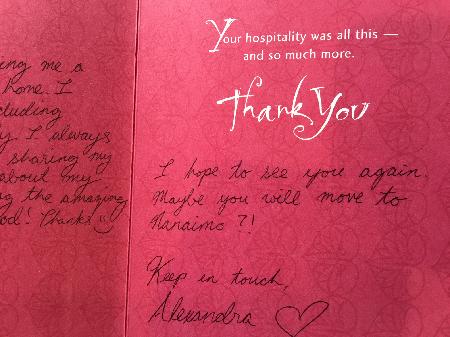 ing me a
home. I
cluding
y. I always
sharing my
about my
g the amazing
od! Thanks :)
Your hospitality was all this —
and so much more.
Thank You
I hope to see you again.
Maybe you will move to
Nanaimo?!
Keep in touch,
Alexandra ♡